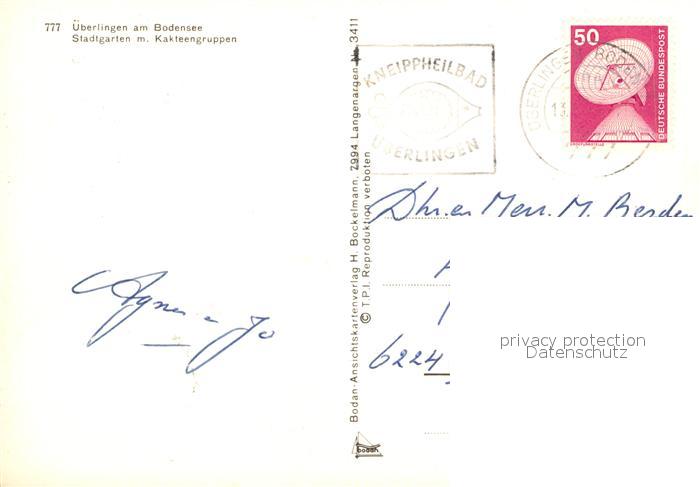 777 Überlingen am Bodensee
Stadtgarten m. Kakteengruppen
KNEIPPHEILBAD
ÜBERLINGEN
ÜBERLINGEN
777
50
DEUTSCHE BUNDESPOST
ERDFUNKSTELLE
Bodan-Ansichtskartenverlag H. Bockelmann, 7994 Langenargen Nr. 3411
© T.P.I. Reproduktion verboten
Dhr. en Mevr. M.
6224
privacy protection
Datenschutz
Agnes en Jo
bodan